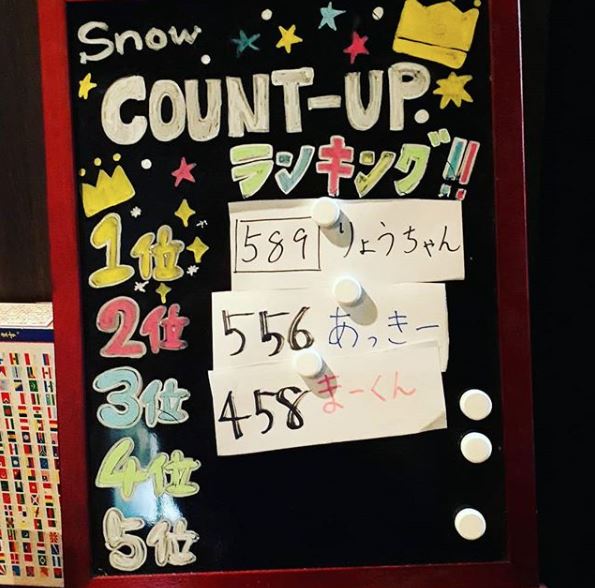 Snow.
COUNT-UP.
ランキング!!
1位 589 りょうちゃん
2位 556 あっきー
3位 458 まーくん
4位
5位